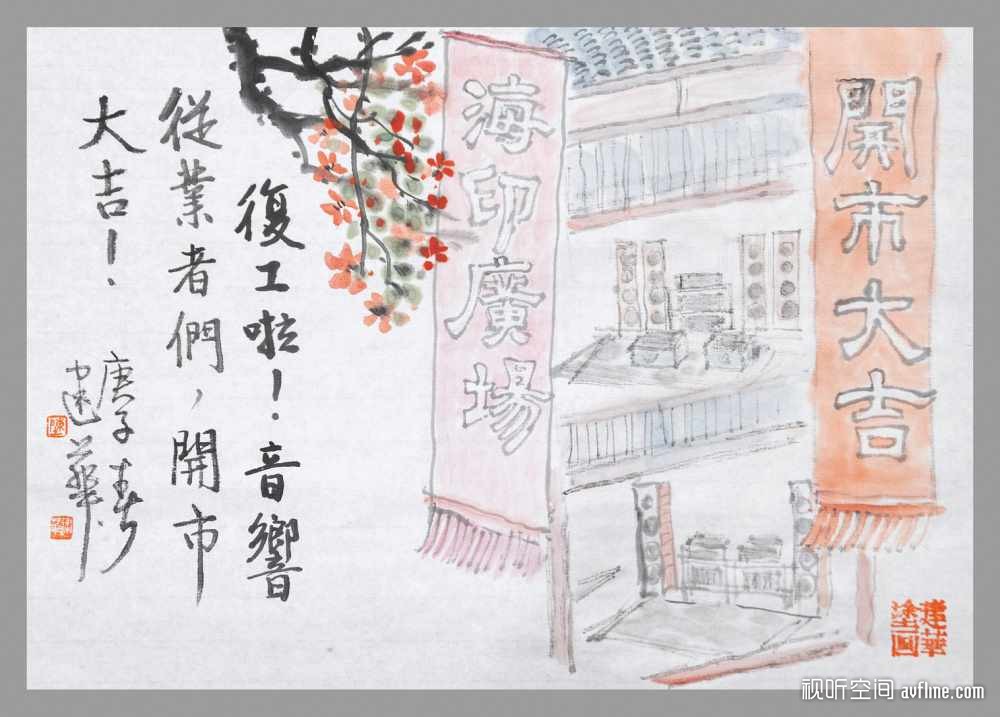 開市大吉
海印廣場
復工啦！音響
從業者們，開市
大吉！
庚子春
建華
建華
塗画
视听空间 avfline.com